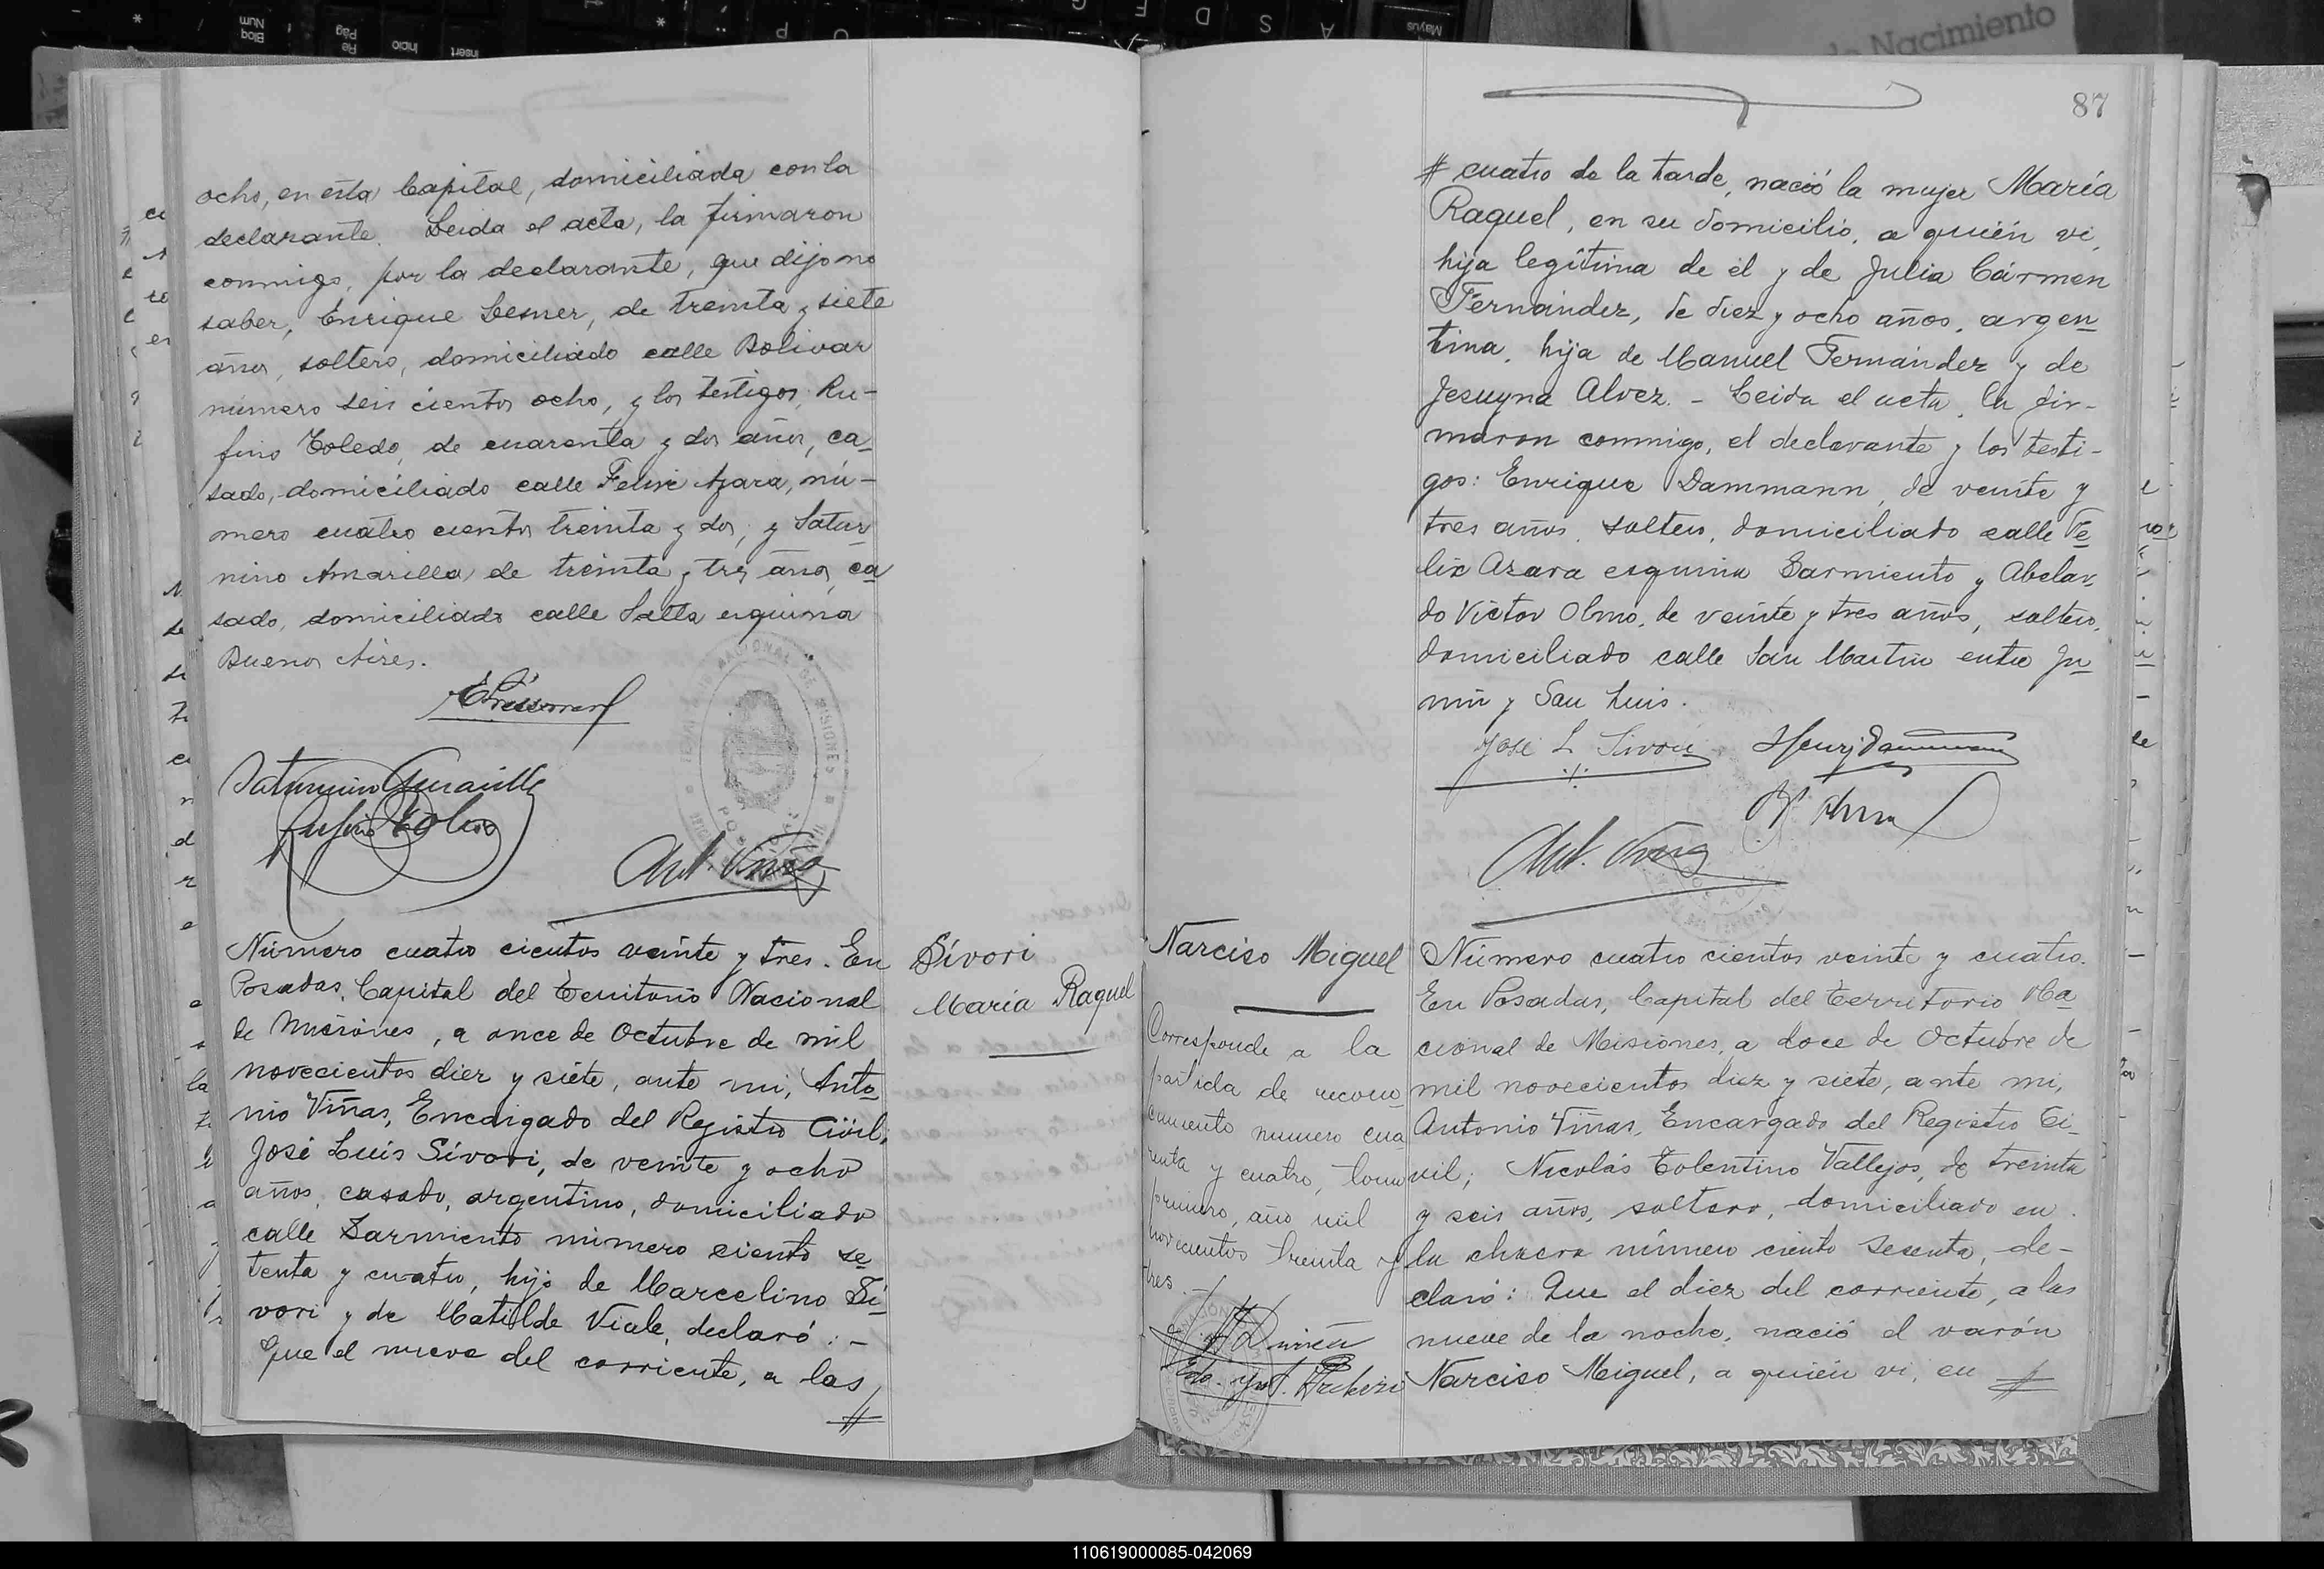 ocho, en esta Capital, domiciliada con la
declarante. Leida el acta, la firmaron
conmigo, por la declarante, que dijo no
saber, Enrique Lesner, de treinta y siete
años, soltero, domiciliado calle Bolivar
número seis cientos ocho, y los testigos, Ru-
fino Toledo, de cuarenta y dos años, ca
sado, domiciliado calle Felix Azara, nú-
mero cuatro cientos treinta y dos, y Satur
nino Amarilla, de treinta y tres años, ca
sado, domiciliado calle Salta esquina
Buenos Aires.
Saturnino Amarilla
Rufino Toledo
Ant. Viñas
Número cuatro cientos veinte y tres. En
Posadas, Capital del Territorio Nacional
de Misiones, a once de Octubre de mil
novecientos diez y siete, ante mi, Anto
nio Viñas, Encargado del Registro Civil,
José Luis Sívori, de veinte y ocho
años, casado, argentino, domiciliado
calle Sarmiento número ciento se
tenta y cuatro, hijo de Marcelino Sí
vori y de Matilde Viale, declaró: -
Que el nueve del corriente, a las
#
Sívori
María Raquel
87
# cuatro de la tarde, nació la mujer María
Raquel, en su domicilio, a quién vi,
hija legítima de él y de Julia Cármen
Fernández, de diez y ocho años, argen
tina, hija de Manuel Fernández y de
Jesuyna Alvez. - Leida el acta, la fir-
maron conmigo, el declarante y los testi-
gos: Enrique Dammann, de veinte y
tres años, soltero, domiciliado calle Fe
lix Azara esquina Sarmiento y Abelar
do Víctor Olmo, de veinte y tres años, soltero,
domiciliado calle San Martín entre Ju
nin y San Luis.
José L. Sívori Henry Dammann
Ant. Viñas
Narciso Miguel
Corresponde a la
partida de recono
cimiento numero cua
renta y cuatro, tomo
primero, año mil
novecientos treinta y
tres. -
Número cuatro cientos veinte y cuatro.
En Posadas, Capital del Territorio Na
cional de Misiones, a doce de Octubre de
mil novecientos diez y siete, ante mi,
Antonio Viñas, Encargado del Registro Ci-
vil; Nicolás Tolentino Vallejos, de treinta
y seis años, soltero, domiciliado en
la chacra número ciento sesenta, de-
claró: Que el diez del corriente, a las
nueve de la noche, nació el varón
Narciso Miguel, a quién vi, en #
110619000085-042069